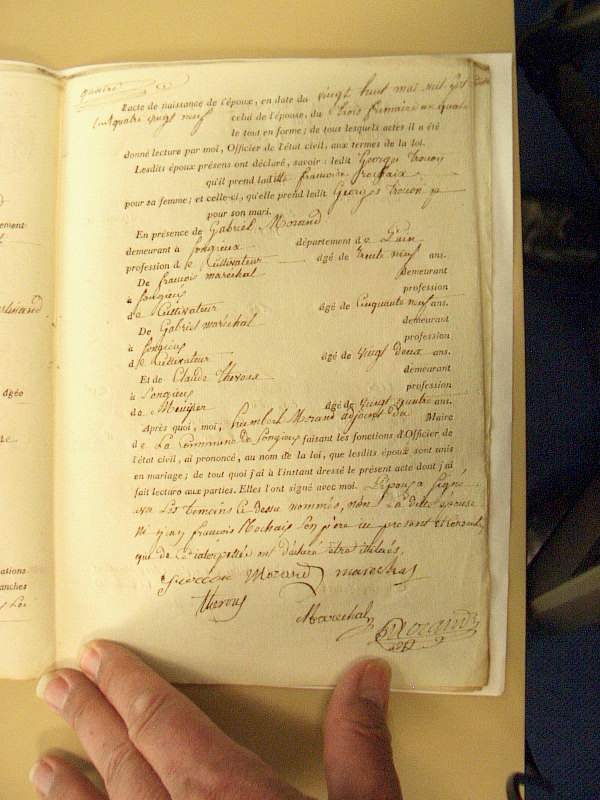 quatre
l'acte de naissance de l'époux, en date du vingt huit mai mil sept
cent quatre vingt neuf celui de l'épouse, du trois frimaire an quatre
le tout en forme; de tous lesquels actes il a été
donné lecture par moi, Officier de l'état civil, aux termes de la loi.
Lesdits époux présens ont déclaré, savoir: ledit Georges
qu'il prend ladite francoise
pour sa femme; et celle-ci, qu'elle prend ledit Georges
pour son mari.
En présence de Gabriel Morand
demeurant à Songieux département de L'ain
profession de Cultivateur âgé de trente neuf ans.
De francois marechal demeurant
à Songieux profession
de Cultivateur âgé de Cinquante neuf ans.
De Gabriel maréchal demeurant
à Songieux profession
de Cultivateur âgé de vingt deux ans.
Et de Claude theroux demeurant
à Songieux profession
de Meunier âgé de vingt quatre ans.
Après quoi, moi, humbert Morand adjoint du Maire
de La Commune de Songieux faisant les fonctions d'Officier de
l'état civil, ai prononcé, au nom de la loi, que lesdits époux sont unis
en mariage; de tout quoi j'ai à l'instant dressé le présent acte dont j'ai
fait lecture aux parties. Elles l'ont signé avec moi. L'époux a signé
avec Les temoins Ci dessu nommés, non La ditte épouse
Ni francois Son père ici présent et consent,
que de Ce interpellés ont déclaré être illitérés,
Morand marechal
theroux
Marechal
Morand
ement
ferdinand
âgéo
ations
anches